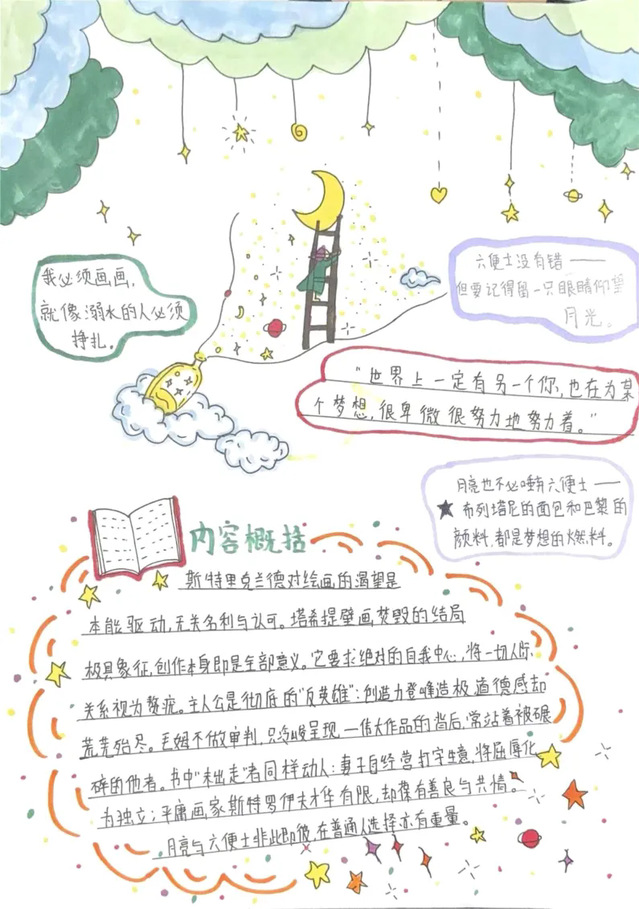 我必须画画,
就像溺水的人必须
挣扎。
六便士没有错——
但要记得留一只眼睛仰望
月光。
"世界上一定有另一个你,也在为某
个梦想,很卑微很努力地努力着。"
月亮也不必唾弃六便士——
布列塔尼的面包和巴黎的
颜料,都是梦想的燃料。
内容概括
斯特里克兰德对绘画的渴望是
本能驱动,无关名利与认可。塔希提壁画焚毁的结局
极具象征,创作本身即是全部意义。它要求绝对的自我中心,将一切人际
关系视为赘疣。主人公是彻底的"反英雄":创造力登峰造极,道德感却
荒芜殆尽。毛姆不做审判,只冷峻呈现,一伟大作品的背后,常站着被碾
碎的他者。书中"未出走"者同样动人:妻子自经营打字生意,将屈辱化
为独立;平庸画家斯特罗伊夫才华有限,却葆有善良与共情。
月亮与六便士非此即彼,在普通人选择亦有重量。